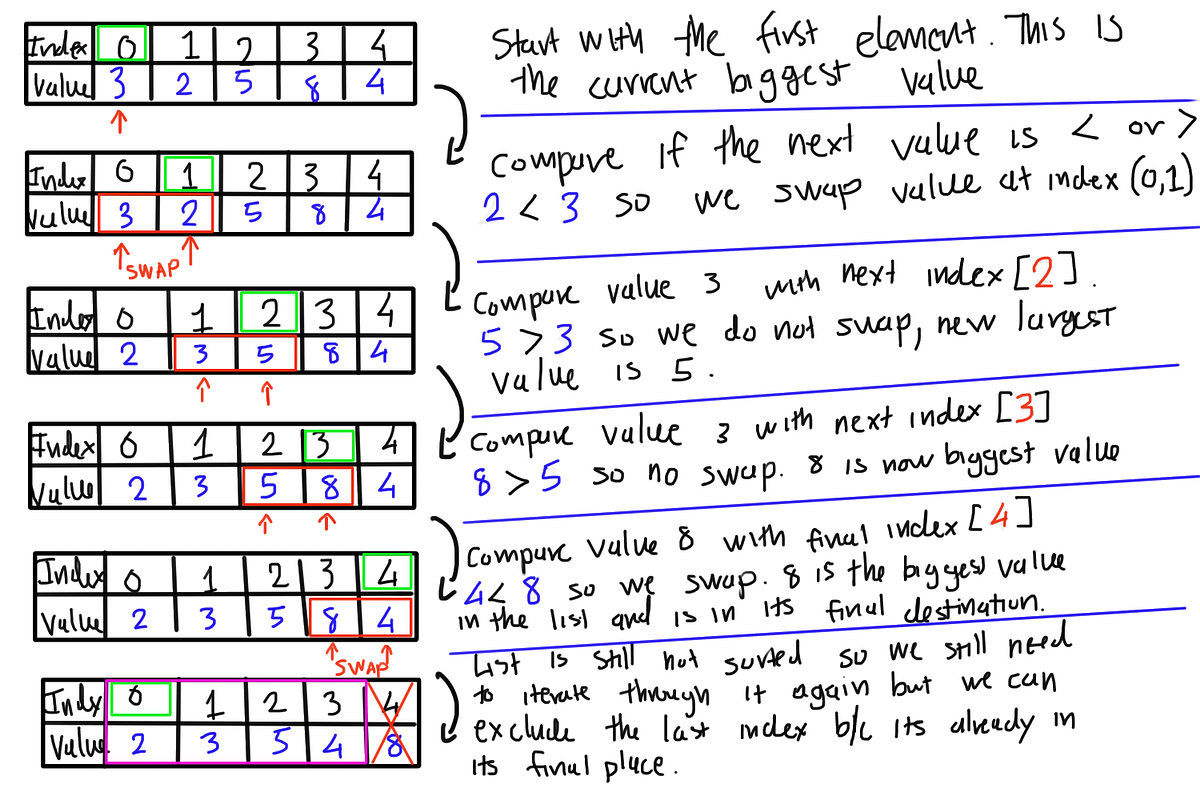 Index 0 1 2 3 4
Value 3 2 5 8 4
Start with the first element. This is
the current biggest value
Index 0 1 2 3 4
Value 3 2 5 8 4
SWAP
Compare if the next value is < or >
2 < 3 so we swap value at index (0,1)
Index 0 1 2 3 4
Value 2 3 5 8 4
Compare value 3 with next index [2].
5 > 3 so we do not swap, new largest
value is 5.
Index 0 1 2 3 4
Value 2 3 5 8 4
Compare value 3 with next index [3]
8 > 5 so no swap. 8 is now biggest value
Index 0 1 2 3 4
Value 2 3 5 8 4
SWAP
Compare value 8 with final index [4]
4 < 8 so we swap. 8 is the biggest value
in the list and is in its final destination.
Index 0 1 2 3 4
Value 2 3 5 4 8
List is still not sorted so we still need
to iterate through it again but we can
exclude the last index b/c its already in
its final place.